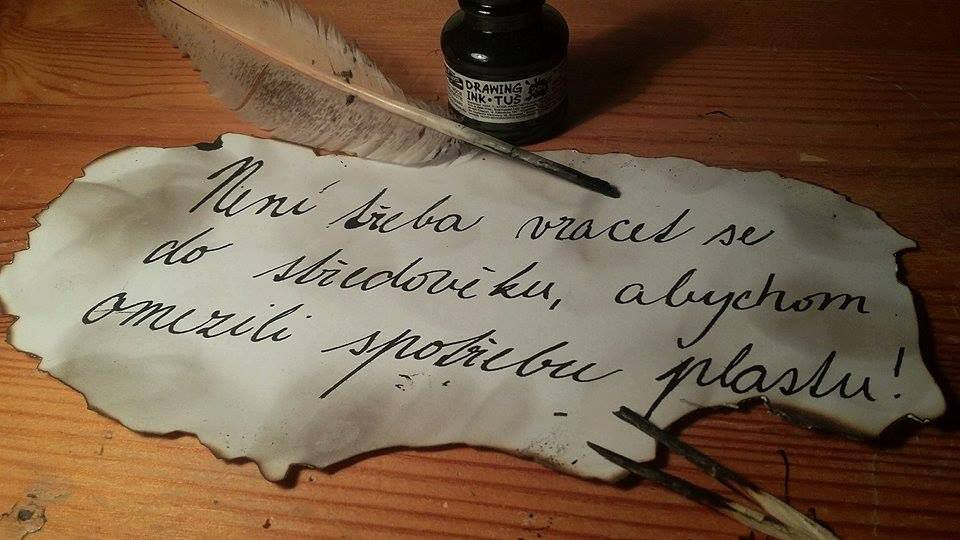 DRAWING
INK•TUŠ
Není třeba vracet se
do středověku, abychom
omezili spotřebu plastu!